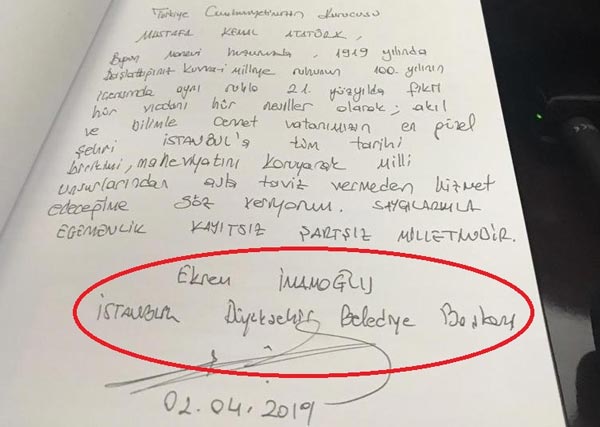 Türkiye Cumhuriyetimizin Kurucusu
MUSTAFA KEMAL ATATÜRK,
Bugün manevi huzurunda, 1919 yılında
Başlattığınız Kuvva-i Milliye ruhunun 100. yılının
içerisinde aynı ruhla 21. yüzyılda fikri
hür vicdanı hür nesiller olarak; akıl
ve bilimle Cennet vatanımızın en güzel
şehri İSTANBUL'a tüm tarihi
birikimi, maneviyatını koruyarak Milli
unsurlarından asla taviz vermeden hizmet
edeceğime söz veriyorum. SAYGILARIMLA
EGEMENLİK KAYITSIZ ŞARTSIZ MİLLETİNDİR.
Ekrem İMAMOĞLU
İSTANBUL Büyükşehir Belediye Başkanı
02.04.2019